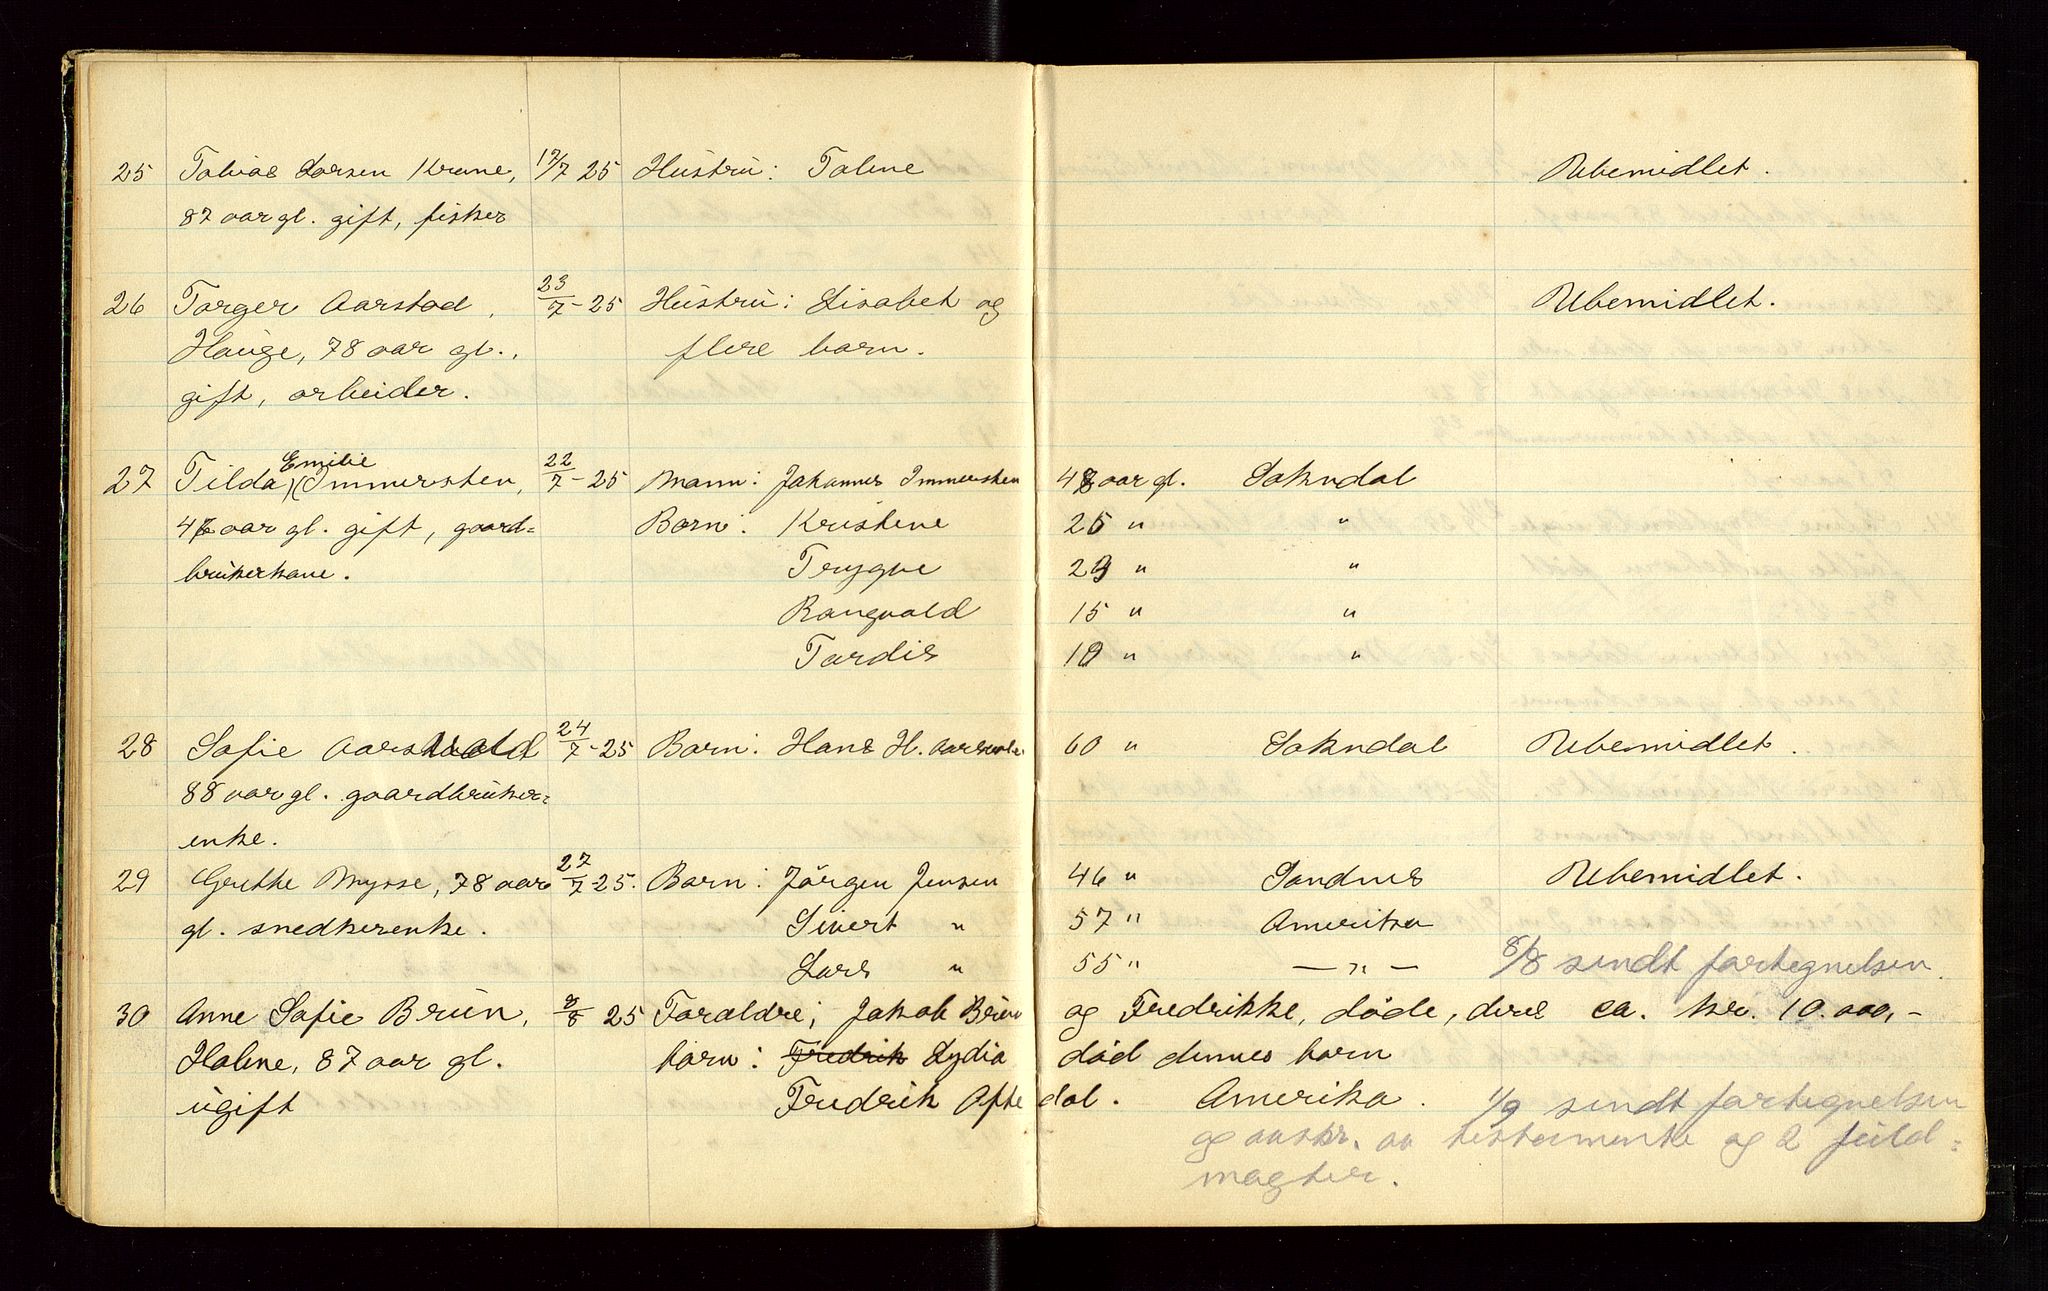 25 Tobias Larsen Krune, 17/7 25 Hustru: Toline Ubemidlet.
87 aar gl. gift, fisker
26 Torger Aarstad, 23/7-25 Hustru: Lisabet og Ubemidlet.
Hauge, 78 aar gl., flere barn.
gift, arbeider.
Emilie
27 Tilda Immersten, 22/7-25 Mann: Johannes Immersten 48 aar gl. Sokndal
46 aar gl. gift, gaard= Barn: Kristine 25 " "
brukerkone. Trygve 23 " "
Rangvald 15 " "
Tordis 10 " "
28 Sofie Aarsvold 24/7-25 Barn: Hans H. Aarsvold 60 " Sokndal Ubemidlet.
88 aar gl. gaardbruker=
enke.
29 Grethe Mysse, 78 aar 27/7 25. Barn: Jörgen Jensen 46 " Sandnes Ubemidlet.
gl. snedkerenke. Sivert " 57 " Amerika
Lars " 55 " —"— 8/8 sendt fortegnelsen.
30 Anne Sofie Bruin, 3/8 25 Foraldre; Jakob Bruin og Fredrikke, døde, deres ca. kr. 10.000,-
Halene, 87 aar gl. barn: Fredrik Lydia død dennes barn
ugift Fredrik Aftedal. Amerika. 1/9 sendt fortegnelsen
og avskr. av testamente og 2 fuld=
magter.